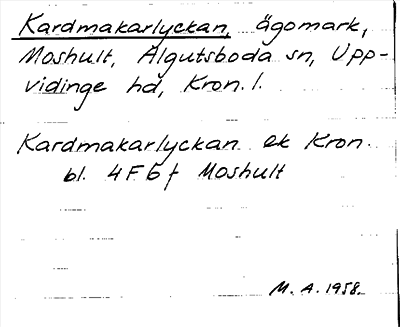 Kardmakarlyckan, ägomark,
Moshult, Älgutsboda sn, Upp-
vidinge hd, Kron. l.
Kardmakarlyckan ek Kron.
bl. 4F6f Moshult
M. A. 1958.